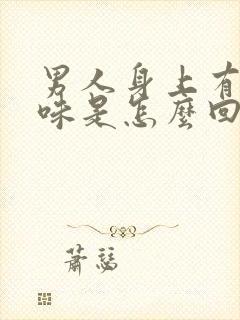 男人身上有
味是怎麼回
蕭瑟